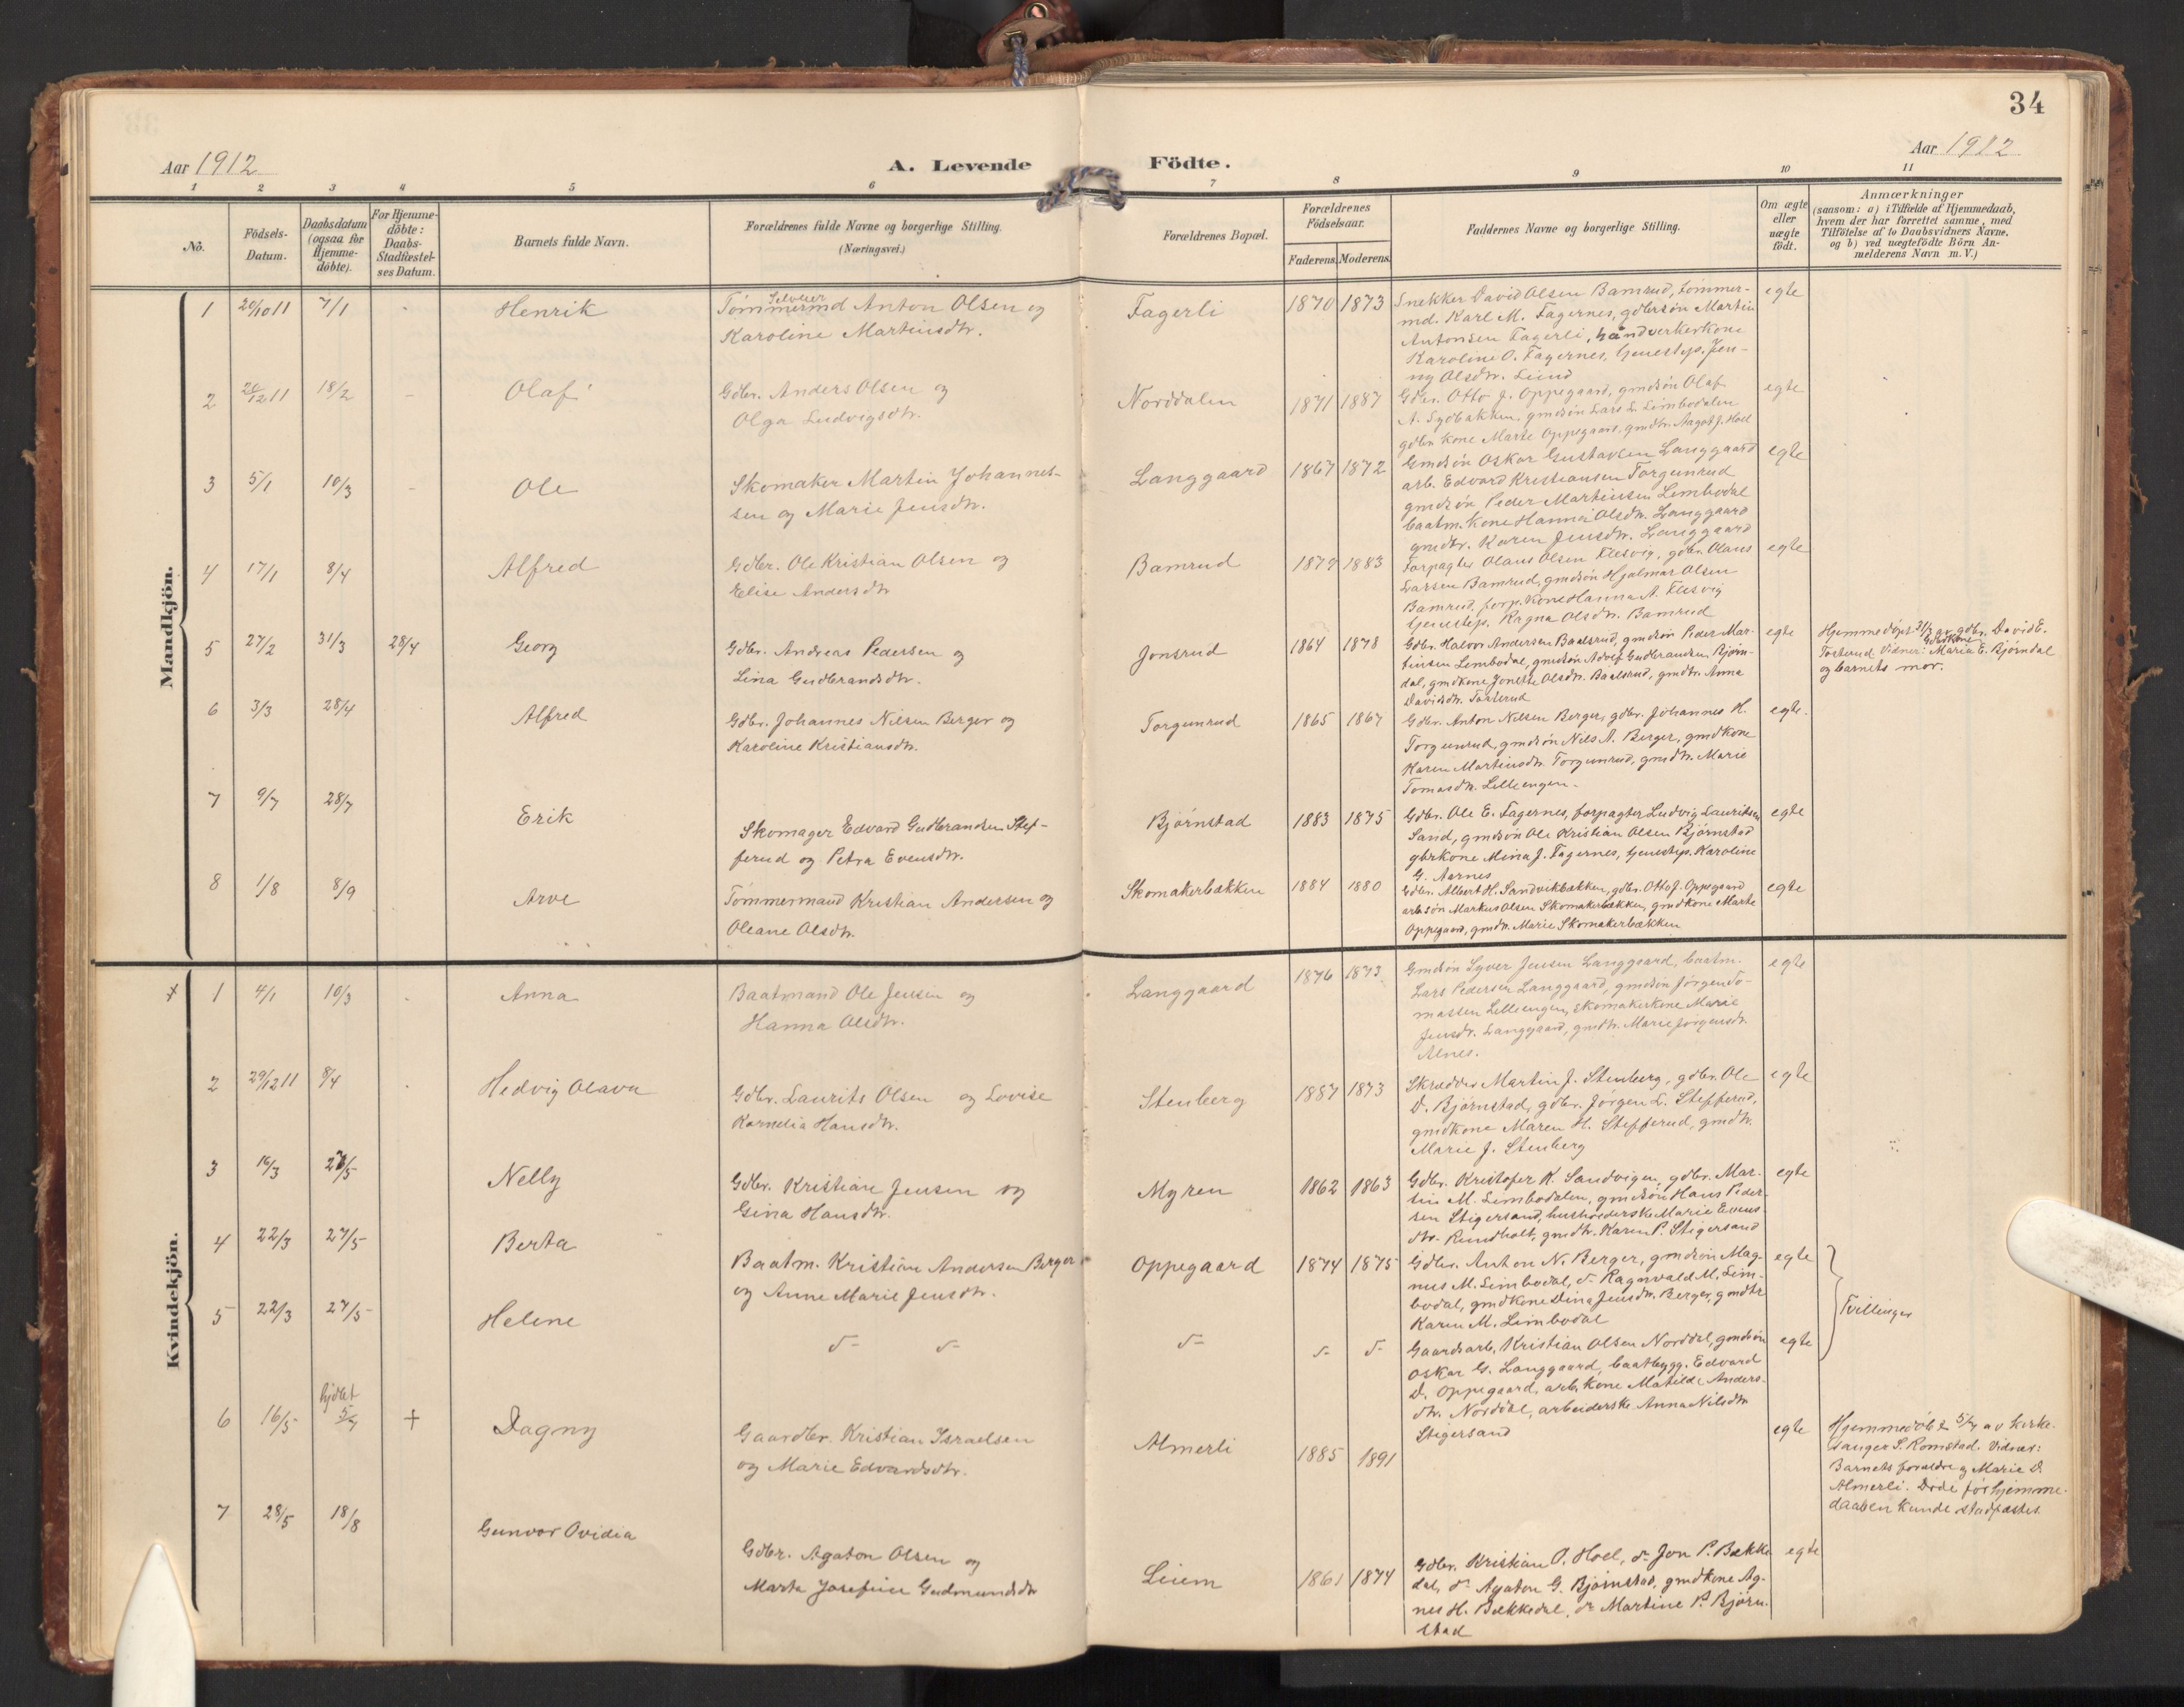 34
Aar 1912
A. Levende Födte.
Aar 1912
1 2 3 4 5 6 7 8 9 10 11
No.
Födsels-Datum.
Daabsdatum (ogsaa for Hjemme-döbte).
For Hjemme-döbte: Daabs-Stadfæstel-ses Datum.
Barnets fulde Navn.
Forældrenes fulde Navne og borgerlige Stilling.
(Næringsvei.)
Forældrenes Bopæl.
Forældrenes Födselsaar.
Faderens. Moderens.
Faddernes Navne og borgerlige Stilling.
Om ægte eller uægte födt.
Anmærkninger
(saasom: a) i Tilfælde af Hjemmedaab,
hvem der har forrettet samme, med
Tilföielse af to Daabsvidners Navne,
og b) ved uægtefödte Börn An-
melderens Navn m. V.)
Mandkjön.
1 20/10 11 7/1 - Henrik
Selveier
Tømmermd Anton Olsen og
Karoline Martinsdtr.
Fagerli 1870 1873
Snekker David Olsen Bamrud, tømmer-
md. Karl M. Fagernes, gdbrsøn Martin
Antonsen Fagerli, håndverkerkone
Karoline O. Fagernes, tjenestep. Jen-
ny Olsdtr. Lund
egte
2 26/12 11 18/2 - Olaf
Gdbr. Anders Olsen og
Olga Ludvigsdtr.
Norddalen 1871 1887
Gdbr. Otto J. Oppegaard, gmdsøn Olaf
A. Sydbakken, gmdsøn Lars L. Limbodalen
gdbr. kone Marte Oppegaard, gmdtr. Aagot J. Hoel
egte
3 5/1 10/3 - Ole
Skomaker Martin Johannes-
sen og Marie Jensdtr.
Langgaard 1867 1872
Gmdsøn Oskar Gustavsen Langgaard
arb. Edvard Kristiansen Torgunrud
gmdsøn Peder Martinsen Limbodal
baatm. kone Hanna Olsdtr. Langgaard
gmdtr. Karen Jensdtr. Langgaard
egte
4 17/1 8/4 Alfred
Gdbr. Ole Kristian Olsen og
Elise Andersdtr
Bamrud 1879 1883
Forpagter Olaus Olsen Flesvig, gdbr. Olaus
Larsen Bamrud, gmdsøn Hjalmar Olsen
Bamrud, forp. kone Hanna A. Flesvig
tjenestep. Ragna Olsdtr. Bamrud
egte
5 27/2 31/3 28/4 Georg
Gdbr. Andreas Pedersen og
Lina Gudbrandsdtr.
Jonsrud 1864 1878
Gdbr. Halvor Andersen Baalsrud, gmdsøn Peder Mar-
tinsen Lembodal, gmdsøn Adolf Gudbrandsen Bjørn-
dal, gmdkone Jonette Olsdtr. Baalsrud, gmdtr. Anna
Davidsdtr. Tosterud
egte
Hjemmedøpt 31/3 av gdbr. David E.
Gdbrkone
Tosterud. Vidner: Maria E. Bjørndal
og barnets mor.
6 3/3 28/4 Alfred
Gdbr. Johannes Nilsen Berger og
Karoline Kristiansdtr.
Torgunrud 1865 1867
Gdbr. Anton Nilsen Berger, gdbr. Johannes H.
Torgunrud, gmdsøn Nils A. Berger, gmdkone
Karen Martinsdtr. Torgunrud, gmdtr. Marie
Tomasdtr. Lilleengen.
egte.
7 9/7 28/7 Erik
Skomager Edvard Gudbrandsen Stef-
ferud og Petra Evensdtr.
Bjørnstad 1883 1875
Gdbr. Ole E. Fagernes, forpagter Ludvig Lauritsen
Sand, gmdsøn Ole Kristian Olsen Bjørnstad
gbrkone Mina J. Fagernes, tjenestep. Karoline
G. Aarnes
egte
8 1/8 8/9 Arve
Tømmermand Kristian Andersen og
Oleane Olsdtr.
Skomakerbakken 1884 1880
Gdbr. Albert H. Sandvikbakken, gdbr. Otto J. Oppegaard
arb.søn Markus Olsen Skomakerbakken, gmdkone Marte
Oppegaard, gmdtr. Marie Skomakerbakken
egte
Kvindekjön.
x 1 4/1 10/3 Anna
Baatmand Ole Jensen og
Hanna Olsdtr.
Langgaard 1876 1873
Gmdsøn Syver Jensen Langgaard, baatm.
Lars Pedersen Langgaard, gmdsøn Jørgen To-
massen Lilleengen, skomakerkone Marie
Jensdtr. Langgaard, gmdtr. Marie Jørgensdtr.
Alnes.
egte
2 29/12 11 8/4 Hedvig Olava
Gdbr. Laurits Olsen og Lovise
Kornelia Hansdtr.
Stenberg 1887 1873
Skrædder Martin J. Stenberg, gdbr. Ole
D. Bjørnstad, gdbr. Jørgen L. Stefferud,
gmdkone Maren H. Stefferud, gmdtr.
Marie J. Stenberg
egte
3 16/3 27/5 Nelly
Gdbr. Kristian Jensen og
Gina Hansdtr.
Myren 1862 1863
Gdbr. Kristofer K. Sandvigen, gdbr. Mar-
tin M. Limbodalen, gmdsøn Hans Peder-
sen Stigersand, husholderske Marie Evens-
dtr. Rundholt, gmdtr. Karen P. Stigersand
egte
4 22/3 27/5 Berta
Baatm. Kristian Andersen Berger
og Anne Marie Jensdtr.
Oppegaard 1874 1875
Gdbr. Anton N. Berger, gmdsøn Mag-
nus M. Limbodal, do Ragnvald M. Lim-
bodal, gmdkone Dina Jensdtr. Berger, gmdtr
Karen M. Limbodal
egte
Tvillinger
5 22/3 27/5 Helene
do do do do do
Gaardsarb. Kristian Olsen Norddal, gmdsøn
Oskar G. Langgaard, baatbygg. Edvard
D. Oppegaard, arb. kone Matilde Anders-
dtr. Norddal, arbeiderske Anna Nilsdtr
Stigersand
egte
6 16/5 hjdbt 5/7 + Dagny
Gaardbr. Kristian Israelsen
og Marie Edvardsdtr.
Almerli 1885 1891
egte
Hjemmedøbt 5/7 av kirke-
sanger S. Romstad. Vidner:
Barnets forældre og Marie D.
Almerli. Døde før hjemme-
daaben kunde stadfæstes
7 28/5 18/8 Gunvor Ovidia
Gdbr. Agaton Olsen og
Marta Josefine Gudmundsdtr
Liem 1861 1874
Gdbr. Kristian O. Hoel, do Jon P. Bække-
dal, do Agaton G. Bjørnstad, gmdkone Ag-
nes H. Bækkedal, do Martine P. Bjørn-
stad
egte